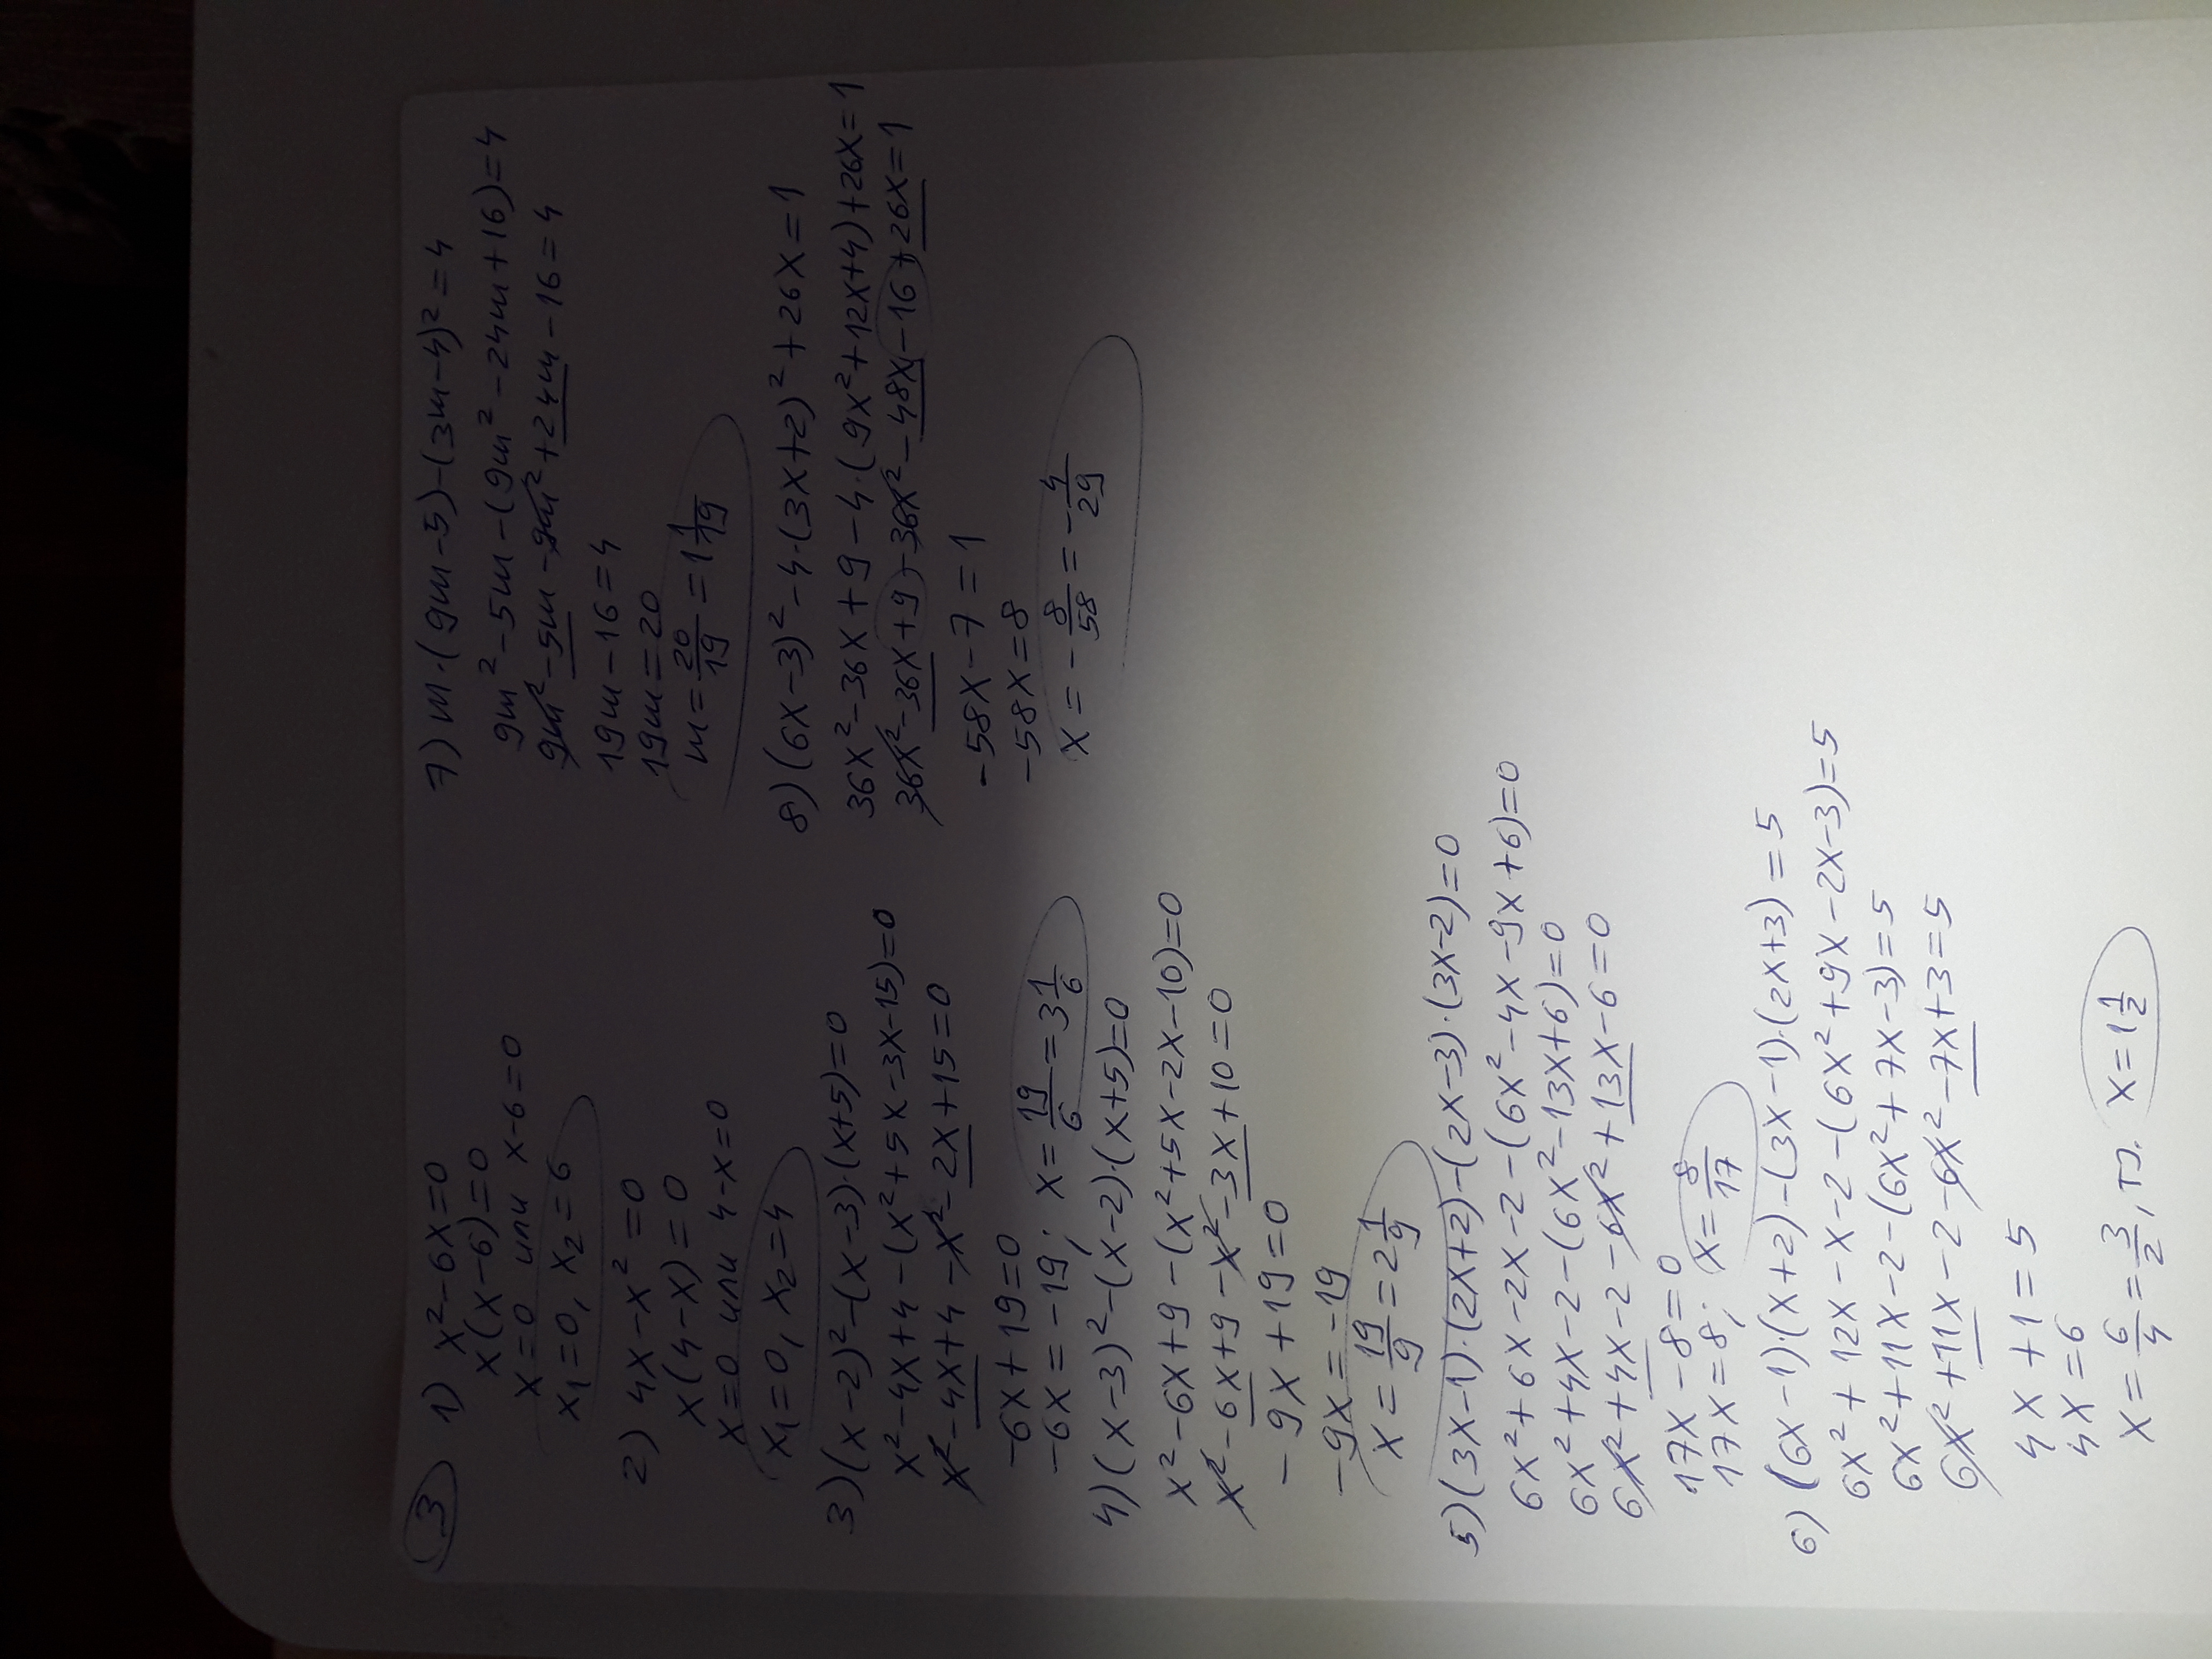 3
1) x² - 6x = 0
x(x-6) = 0
x = 0 или x-6=0
x₁=0, x₂=6
2) 4x - x² = 0
x(4-x) = 0
x=0 или 4-x=0
x₁=0, x₂=4
3) (x-2)² - (x-3)·(x+5)=0
x² - 4x + 4 - (x² + 5x - 3x - 15) = 0
x² - 4x + 4 - x² - 2x + 15 = 0
-6x + 19 = 0
-6x = -19; x = 19/6 = 3 1/6
4) (x-3)² - (x-2)·(x+5)=0
x² - 6x + 9 - (x² + 5x - 2x - 10)=0
x² - 6x + 9 - x² - 3x + 10 = 0
-9x + 19 = 0
-9x = -19
x = 19/9 = 2 1/9
5) (3x-1)·(2x+2) - (2x-3)·(3x-2)=0
6x² + 6x - 2x - 2 - (6x² - 4x - 9x + 6)=0
6x² + 4x - 2 - (6x² - 13x + 6) = 0
6x² + 4x - 2 - 6x² + 13x - 6 = 0
17x - 8 = 0
17x = 8; x = 8/17
6) (6x-1)·(x+2) - (3x-1)·(2x+3) = 5
6x² + 12x - x - 2 - (6x² + 9x - 2x - 3) = 5
6x² + 11x - 2 - (6x² + 7x - 3) = 5
6x² + 11x - 2 - 6x² - 7x + 3 = 5
4x + 1 = 5
4x = 6
x = 6/4 = 3/2, x = 1 1/2
7) m·(9m-5) - (3m-4)² = 4
9m² - 5m - (9m² - 24m + 16) = 4
9m² - 5m - 9m² + 24m - 16 = 4
19m - 16 = 4
19m = 20
m = 20/19 = 1 1/19
8) (6x-3)² - 4·(3x+2)² + 26x = 1
36x² - 36x + 9 - 4·(9x² + 12x + 4) + 26x = 1
36x² - 36x + 9 - 36x² - 48x - 16 + 26x = 1
-58x - 7 = 1
-58x = 8
x = - 8/58 = - 4/29